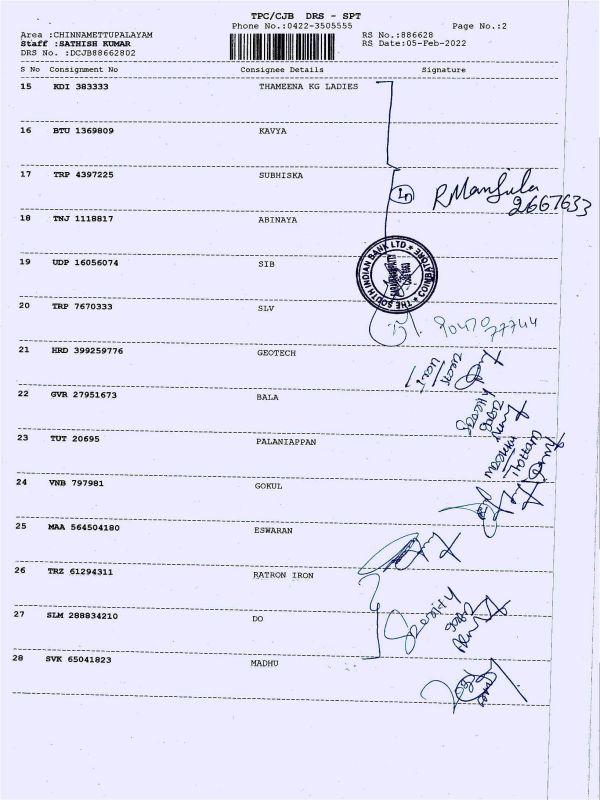 TPC/CJB DRS - SPT
Phone No.:0422-3505555 Page No.:2
Area :CHINNAMETTUPALAYAM RS No.:886628
Staff :SATHISH KUMAR RS Date:05-Feb-2022
DRS No. :DCJB88662802
S No Consignment No Consignee Details Signature
15 KDI 383333 THAMEENA KG LADIES
16 BTU 1369809 KAVYA
17 TRP 4397225 SUBHISKA
R Manjula
2667633
18 TNJ 1118817 ABINAYA
19 UDP 16056074 SIB
THE SOUTH INDIAN BANK LTD. COIMBATORE
20 TRP 7670333 SLV
90470
77744
21 HRD 399259776 GEOTECH
22 GVR 27951673 BALA
23 TUT 20695 PALANIAPPAN
24 VNB 797981 GOKUL
25 MAA 564504180 ESWARAN
26 TRZ 61294311 RATRON IRON
27 SLM 288834210 DO
28 SVK 65041823 MADHU